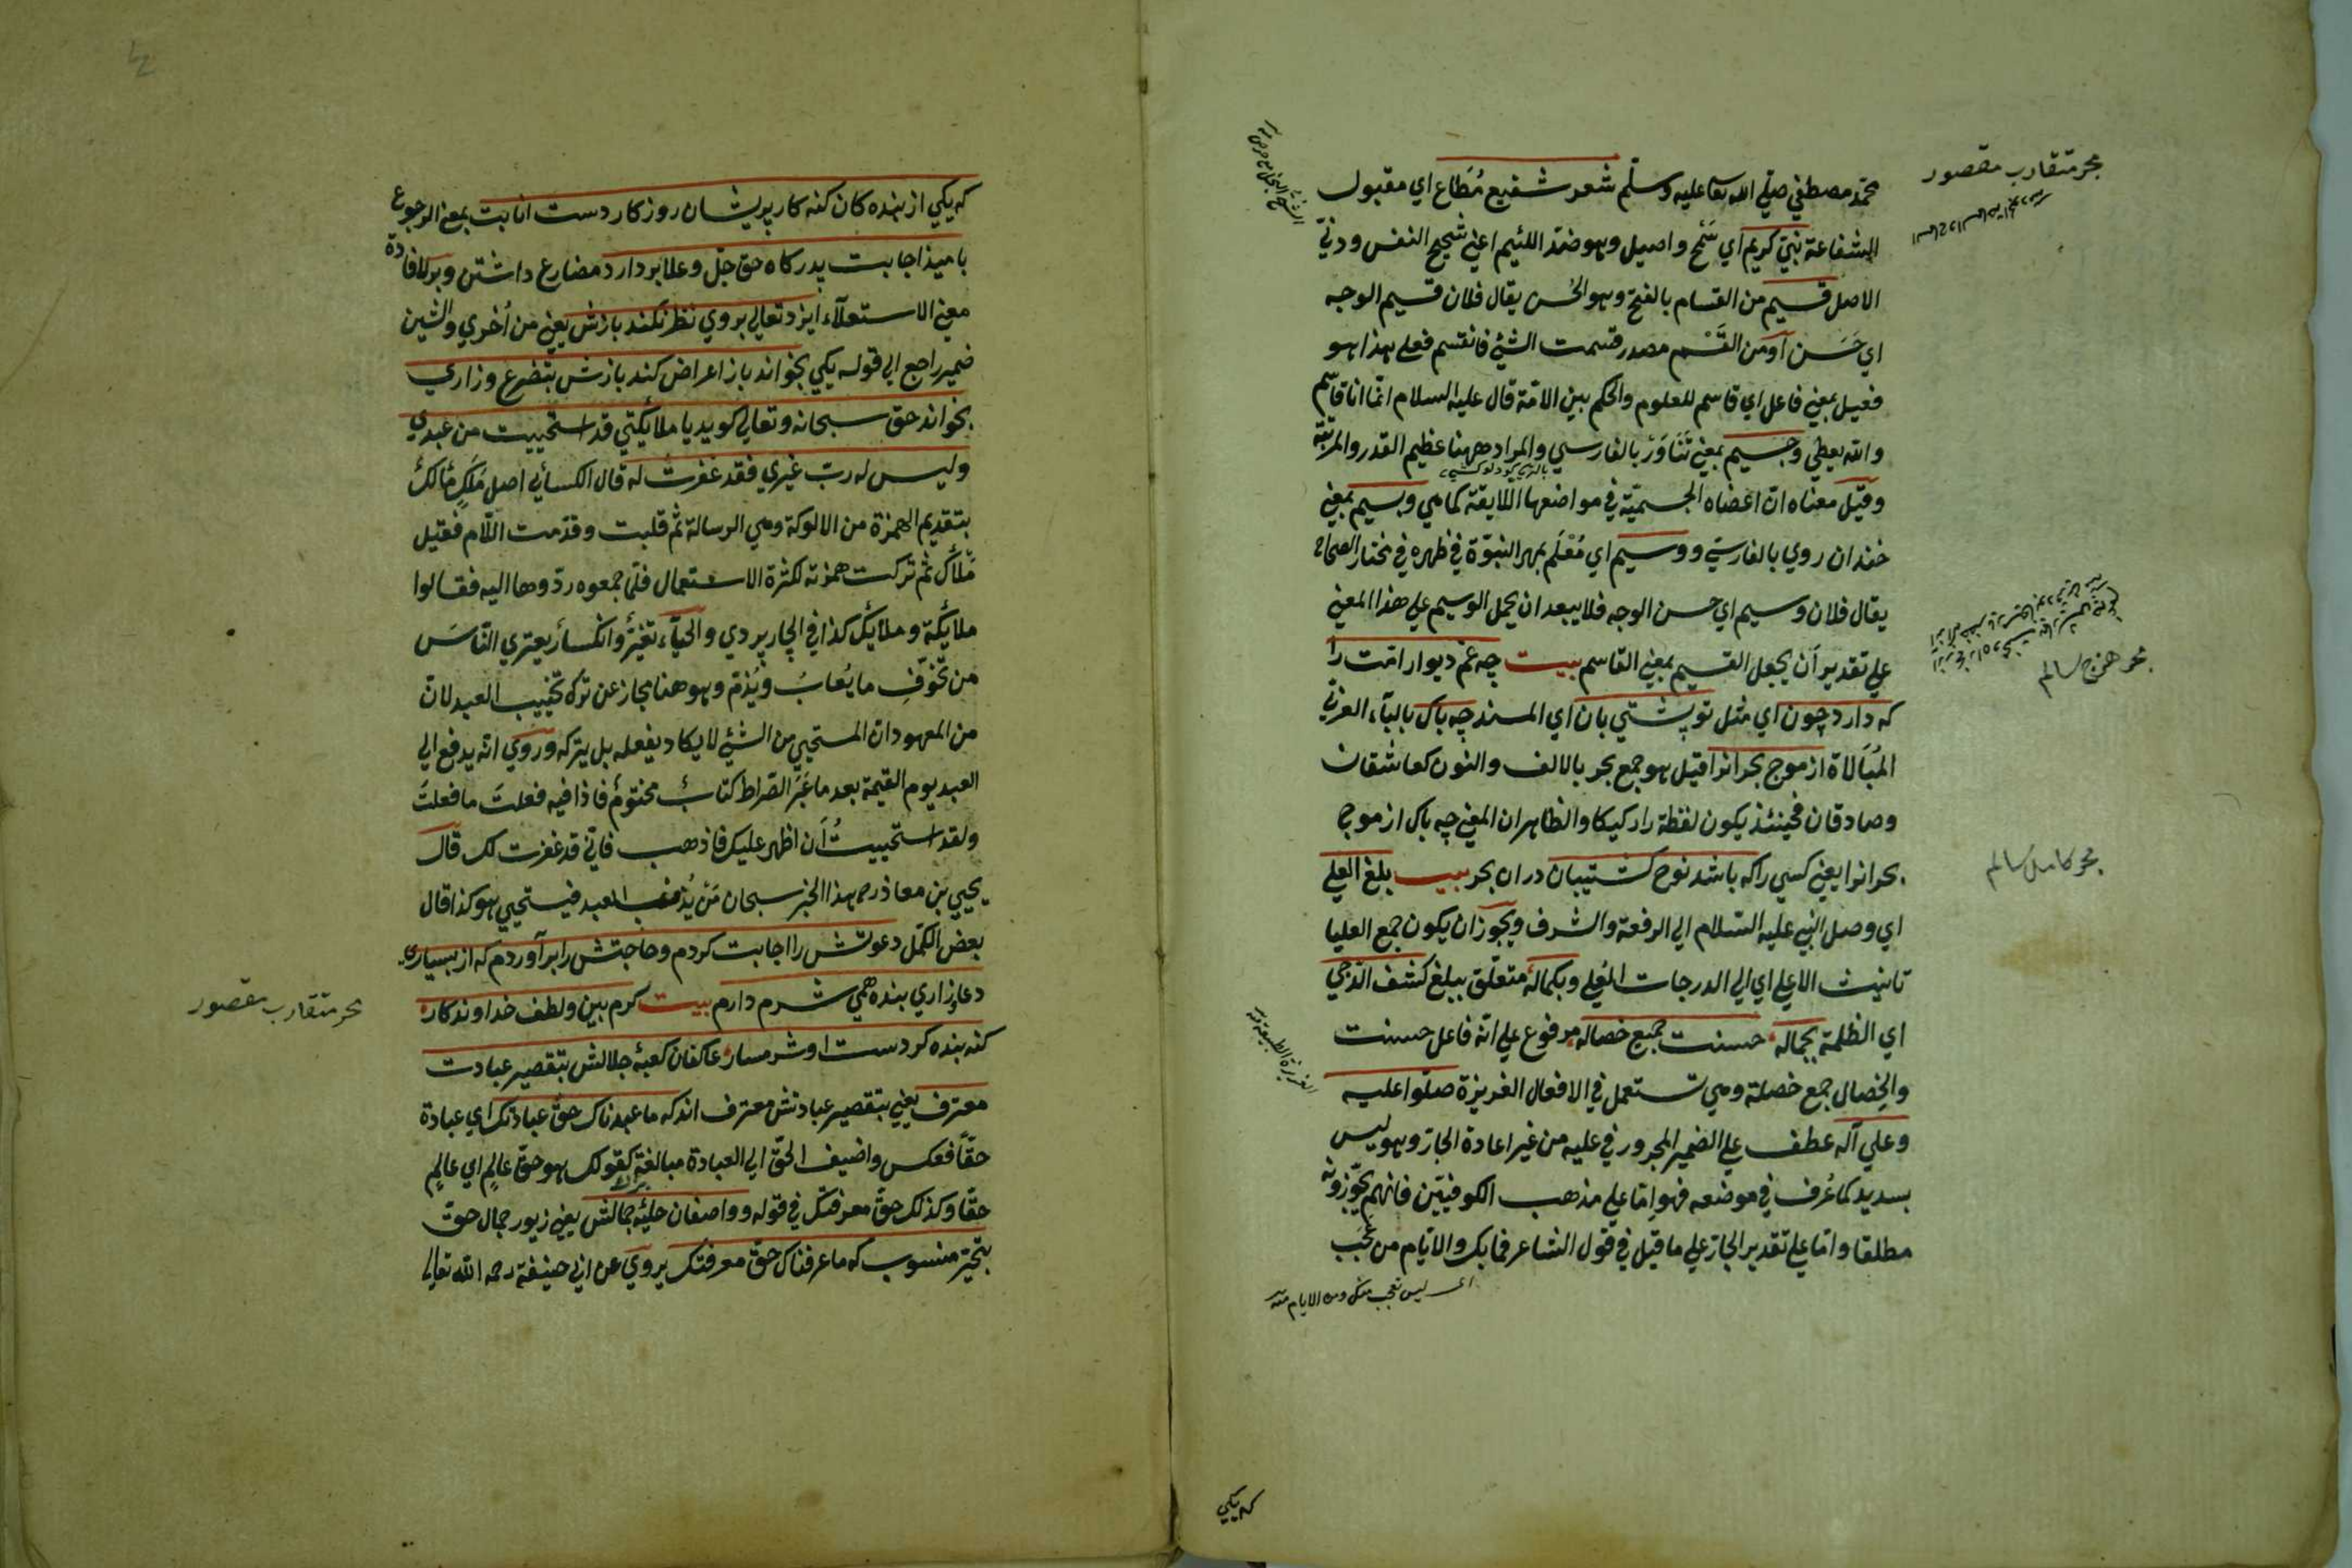 محمد مصطفي صلي الله تعا عليه وسلم شعر شفيع مُطَاع اي مقبول
الشفاعة نبيّ كريم اي سَمْح واصيل وهو ضدّ اللئيم اعني شحيح النفس ودنيّ
الاصل قسيم من القسام بالفتح وهو الحُسن يقال فلان قسيم الوجه
اي حَسَن اَو من القَسْم مصدر قسمت الشئ فانقسم فعلي هذا هو
فعيل بمعني فاعل اي قاسم للعلوم والحكم بين الامّة قال عليه السلام انّما انا قاسم
والله يعطي وجسيم بمعني تَنَاوَرْ بالفارسي والمراد ههنا عظيم القدر والمرتبة
وقيل معناه انّ اعضاه الجسميّة في مواضعها اللايقة كما هي وبسيم بمعني
خندان روي بالفارسيّ ووسيم اي مُعْلَم بمهر النبوّة في ظهره في مختار الصحاح
يقال فلان وسيم اي حسن الوجه فلا يبعد ان يحمل الوسيم علي هذا المعني
علي تقدير اَن يجعل القسيم بمعني القاسم بيت چه غم ديوار امّت را
كه دارد چون اي مثل تو پشتي بان اي المسند چه باك بالبآء العربيّ
المُبَالاة از موج بحر انرا قيل هو جمع بحر بالالف والنون كعاشقان
وصادقان فحينئذ يكون لفظة را ركيكا والظاهر ان المعني چه باك از موج
بحر انرا يعني كسي را كه باشد نوح كشتيبان در ان بحر بيت بلغ العلي
اي وصل النبي عليه السّلام الي الرفعة والشرف ويجوز ان يكون جمع العليا
تانيث الاعلي اي الي الدرجات العُلي وبكماله متعلّق ببلغ كشف الدّجي
اي الظلمة بجماله حسنت جميع خصاله مرفوع علي انّه فاعل حسنت
والخِصال جمع خصلة وهي تستعمل في الافعال الغريزة صلّوا عليه
وعلي آله عطف علي الضمير المجرور في عليه من غير اعادة الجارّ وهو ليس
بسديد كما عُرف في موضعه فهو امّا علي مذهب الكوفيّين فانهم يجوّزونه
مطلقا وامّا علي تقدير الجارّ علي ما قيل في قول الشاعر فما بك والايّام من عَجَب
اى ليس تعجب منك ومن الايام منه
بحر متقارب مقصور
بحر هزج سالم
بحر كامل سالم
كه يكي
كه يكي از بنده كان كنه كار پريشان روزكار دست انابت بمعني الرجوع
باميذ اجابت بدركاه حق جلّ وعلا بر دارد مضارع داشتن وبر لافادة
معني الاستعلآء ايزد تعالي بروي نظر نكند بازش يعني من اُخري والشين
ضمير راجع الي قوله يكي بخواند باز اعراض كند بازش بتضرع وزاري
بخواند حق سبحانه وتعالي كويد يا ملائكتي قد استحييت من عبدي
وليس له ربّ غيري فقد غفرت له قال الكسائي اصل مَلَكٍ مَأْلَكٌ
بتقديم الهمزة من الالوكة وهي الرسالة ثم قلبت وقدّمت اللّام فقيل
مَلْأَكٌ ثم تركت همزته لكثرة الاستعمال فلمّا جمعوه ردّوها اليه فقالوا
ملائكة وملائك كذا في الچارپردي والحيآء تغيّر وانكسار يعتري النّاسَ
من تخوّفِ ما يُعابُ ويُذمّ وهو هنا مجاز عن ترك تخييب العبد لانّ
من المعهود ان المستحيي من الشئ لا يكاد يفعله بل يتركه ورَوَي انّه يدفع الي
العبد يوم القيمة بعد ما عَبَرَ الصّراط كتابٌ مختومٌ فاذا فيه فعلتَ ما فعلتَ
ولقد استحييتُ اَن اظهر عليك فاذهب فانّي قد غفرت لك قال
يحيي بن معاذ رح هذا الخبر سبحان مَنْ يُذنب العبد فيستحيي هو كذا قال
بعض الكمّل دعوتش را اجابت كردم وحاجتش را برآوردم كه از بسياري
دعا وزاري بنده همي شرم دارم بيت كرم بين ولطف خداوندكار
كنه بنده كردست او شرمسار عاكفان كعبۀ جلالش بتقصير عبادت
معترف يعني بتقصير عبادتش معترف اند كه ما عبدناك حقّ عبادتك اي عبادة
حقّاً فعكس واضيف الحقّ الي العبادة مبالغة كقولك هو حقّ عالِمٍ اي عالِمٍ
حقّا وكذلك حقّ معرفتك في قوله وواصفان حليۀ جمالش يعني زيور جمال حق
بتحيّر منسوب كه ما عرفناك حقّ معرفتك يروي عن ابي حنيفة رحمه الله تعالي
بحر متقارب مقصور